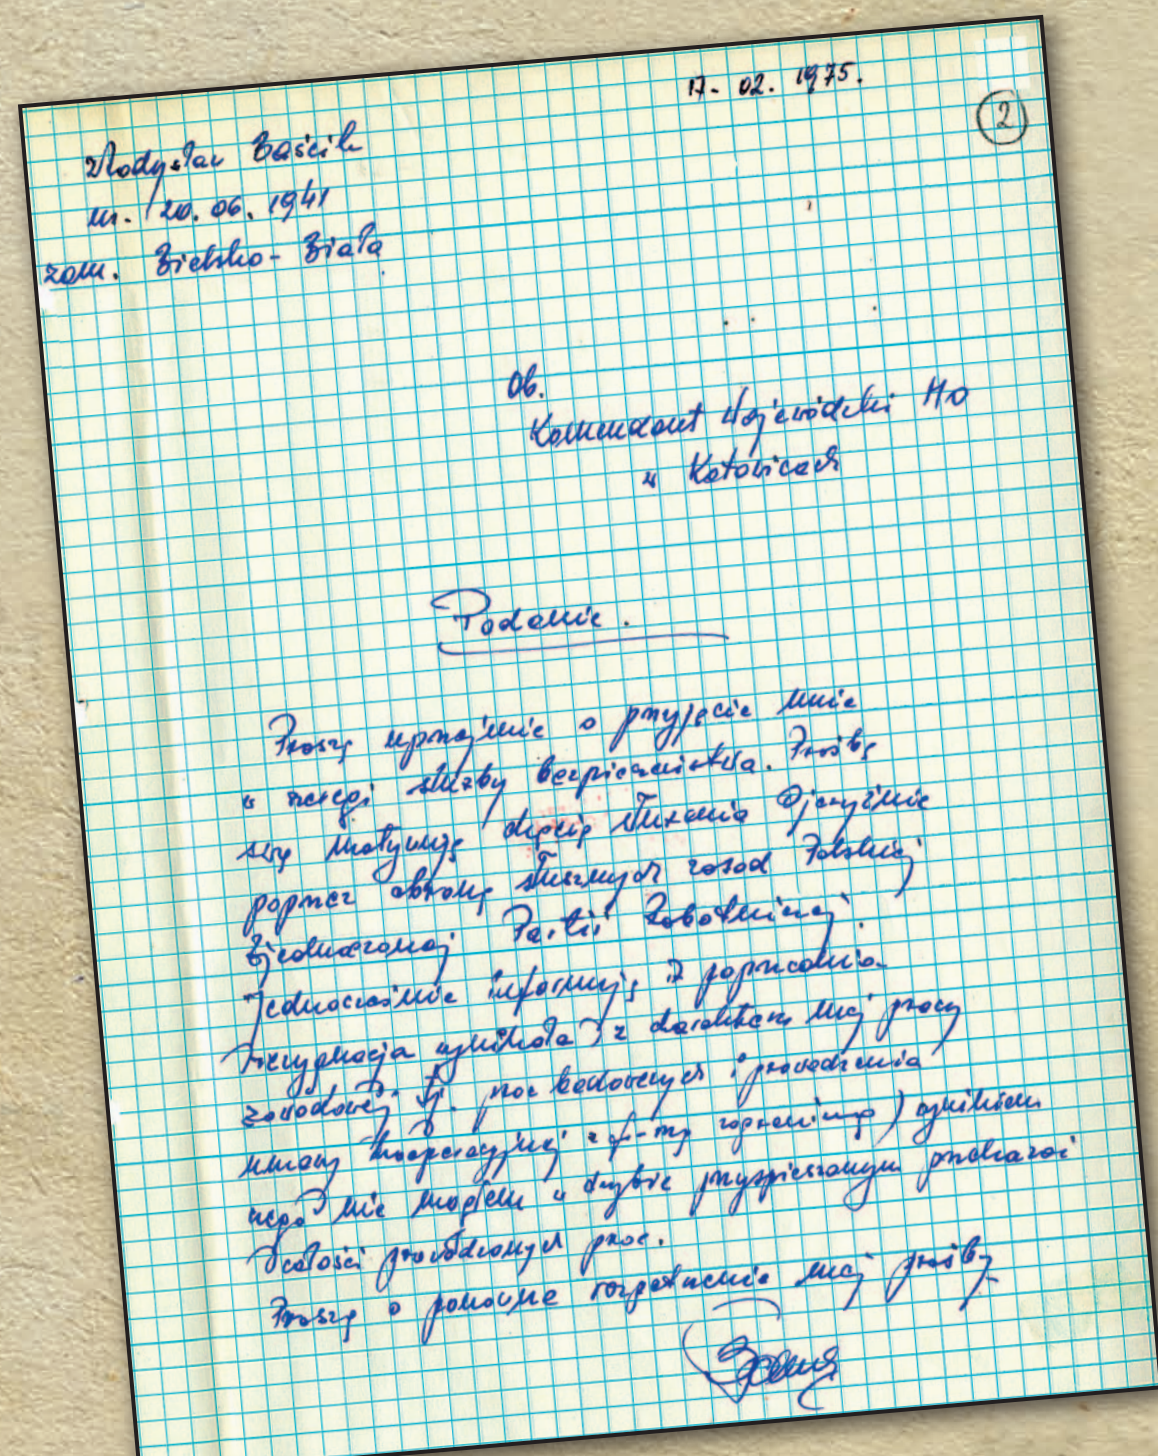 17. 02. 1975.
2
Władysław Baścik
ur. 20. 06. 1941
zam. Bielsko-Biała
Ob.
Komendant Wojewódzki MO
w Katowicach
Podanie.
Proszę uprzejmie o przyjęcie mnie
w szeregi służby bezpieczeństwa. Prośbę
swą motywuję chęcią służenia Ojczyźnie
poprzez obronę słusznych zasad Polskiej
Zjednoczonej Partii Robotniczej.
Jednocześnie informuję iż poprzednia
rezygnacja wynikała z charakteru mej pracy
zawodowej tj. prac badawczych i prowadzenia
umowy kooperacyjnej z f-mą zagraniczną) wynikiem
czego nie mogłem w trybie przyspieszonym przekazać
całości prowadzonych prac.
Proszę o ponowne rozpatrzenie mej prośby